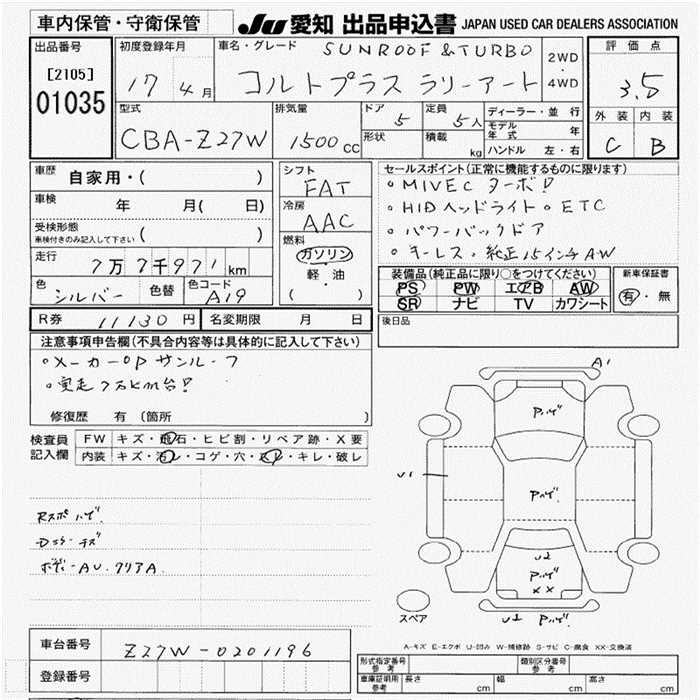 車内保管・守衛保管 JU 愛知 出品申込書 JAPAN USED CAR DEALERS ASSOCIATION
出品番号 初度登録年月 車名・グレード SUNROOF & TURBO 2WD 評価点
[2105] 17 4月 コルトプラス ラリーアート ・4WD 3.5
01035
型式 排気量 ドア 5 定員 5人 ディーラー・並行 外装 内装
CBA-Z27W 1500cc 形状 積載 kg モデル年式 年 C B
ハンドル 左・右
車歴 自家用・( ) シフト FAT セールスポイント(正常に機能するものに限ります)
車検 年 月( 日) 冷房 AAC ・MIVEC ターボ!
・HIDヘッドライト・ETC
受検形態 車検付きのみ記入して下さい ( ) 燃料 ガソリン ・パワーバックドア
走行 7万7千971km 軽・油 ・キーレス・純正15インチAW
色 シルバー 色替 色コード A19 ( ) 装備品(純正品に限り○をつけてください) 新車保証書
PS PW エアB AW 有・無
SR ナビ TV カワシート
R券 11130円 名変期限 月 日 後日品
注意事項申告欄(不具合内容等は具体的に記入して下さい)
・メーカーOPサンルーフ
・実走7万km台!
修復歴 有 (箇所 )
検査員記入欄 FW キズ・飛石・ヒビ割・リペア跡・X要
内装 キズ・汚レ・コゲ・穴・スレ・キレ・破レ
A1
Pハゲ
U1
Pハゲ
Rスポ ハゲ
Dミラー キズ
ボディーAU.クリアA
U2
Pハゲ
XX
スペア U2 Pハゲ
A-キズ E-エクボ U-凹み W-補修跡 S-サビ C-腐食 XX-交換済
車台番号 Z27W-0201196
登録番号
形式指定番号 参考 類別区分番号 参考
車庫証明用 参考 長さ cm 幅 cm 高さ cm